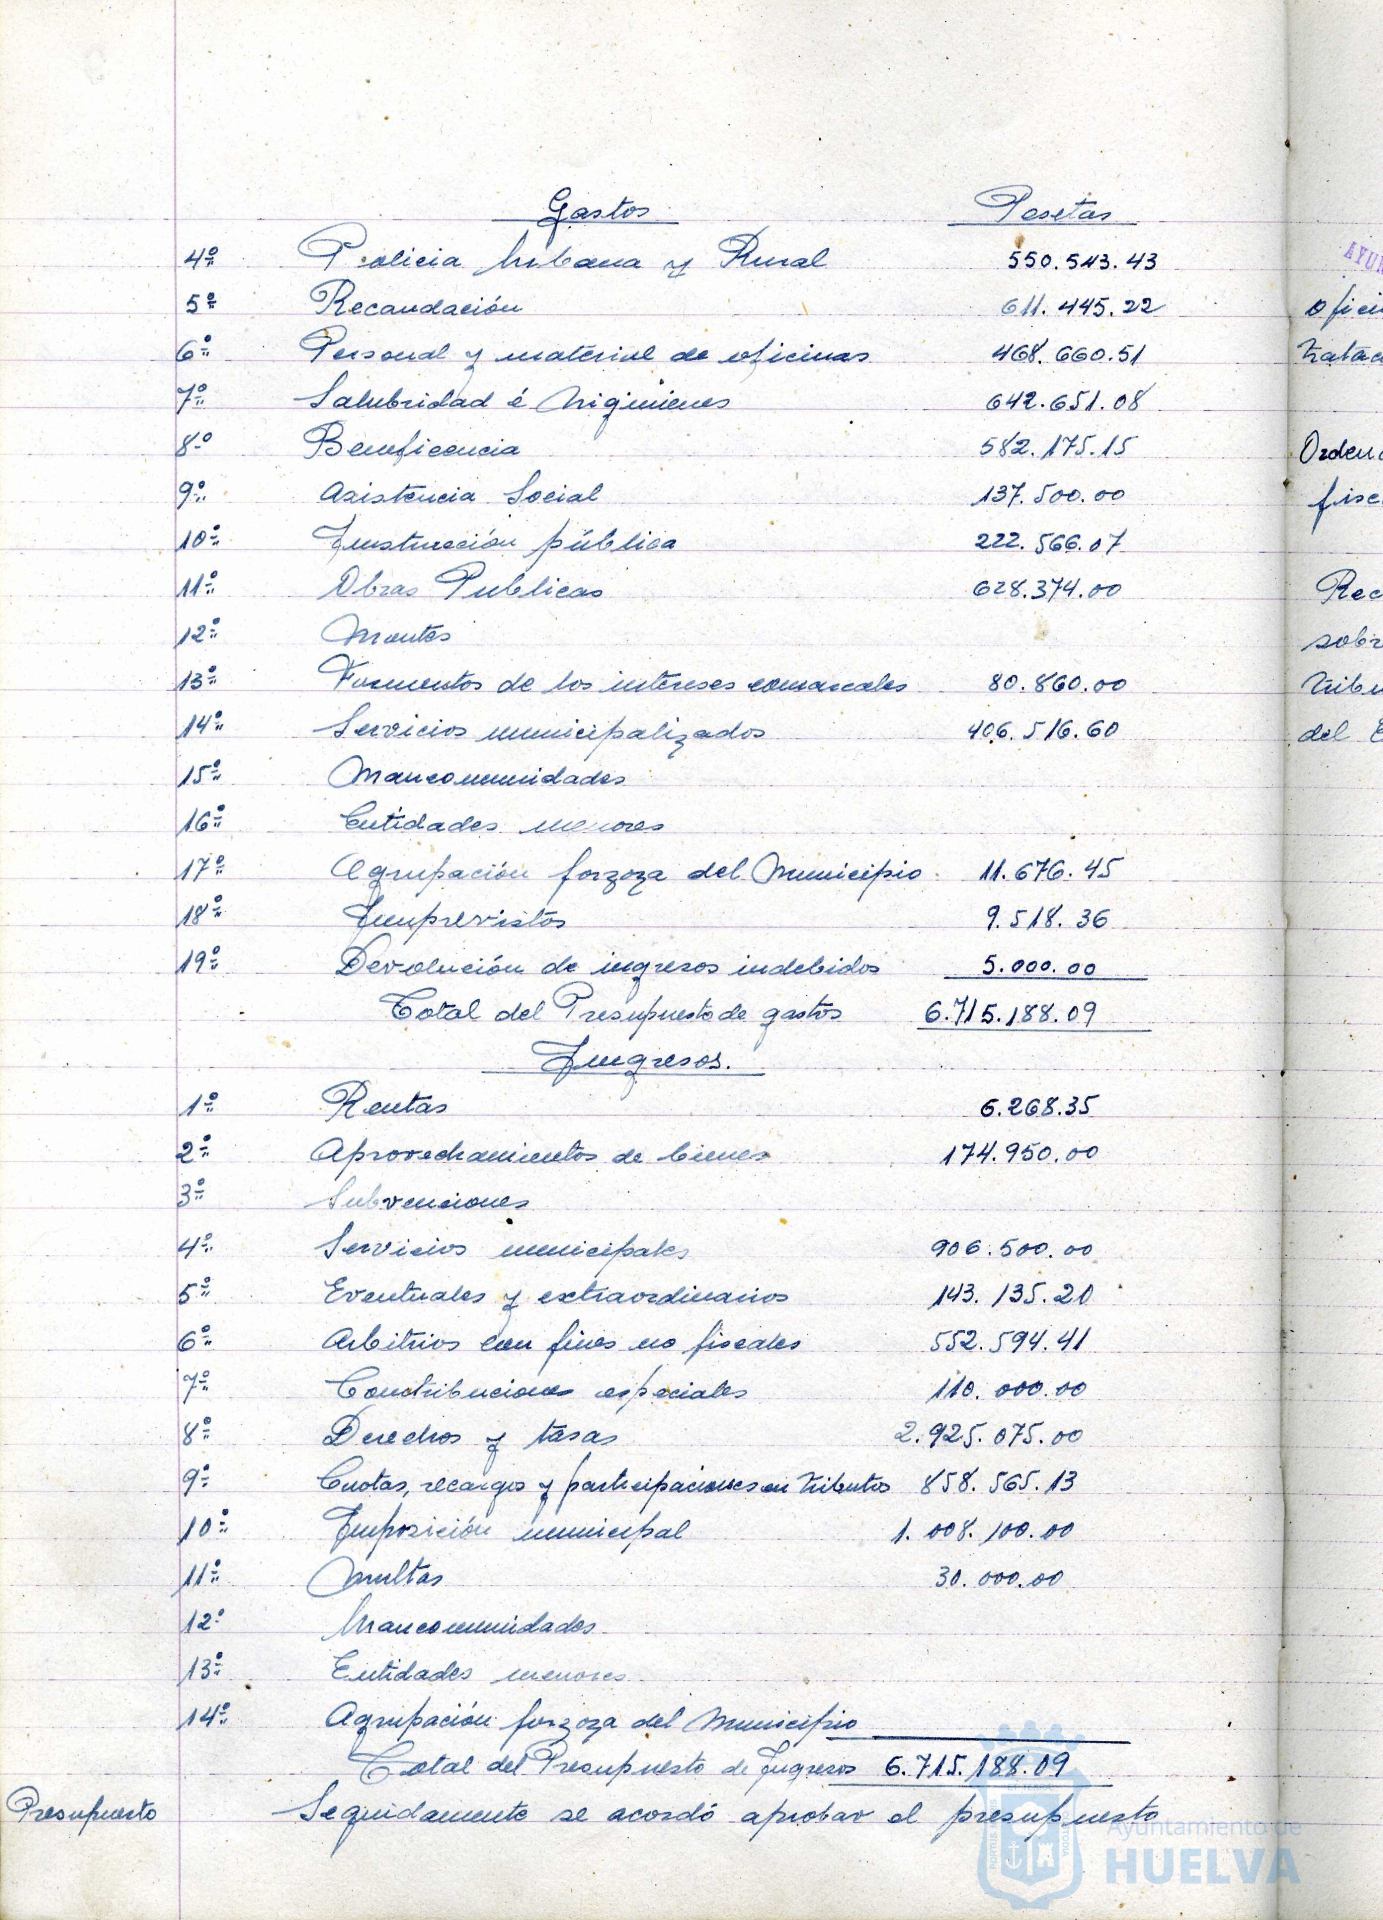 Gastos Pesetas
4º Policia Urbana y Rural 550.543.43
5º Recaudación 611.445.22
6º Personal y material de oficinas 468.660.51
7º Salubridad é higienes 642.651.08
8º Beneficencia 582.175.15
9º Asistencia Social 137.500.00
10º Instrucción pública 222.566.07
11º Obras Publicas 628.374.00
12º Montes
13º Formentos de los intereses comarcales 80.860.00
14º Servicios municipalizados 406.516.60
15º Mancomunidades
16º Entidades menores
17º Agrupación forzoza del Municipio 11.676.45
18º Imprevistos 9.518.36
19º Devolución de ingresos indebidos 5.000.00
Total del Presupuesto de gastos 6.715.188.09
Ingresos.
1º Rentas 6.268.35
2º Aprovechamientos de bienes 174.950.00
3º Subvenciones
4º Servicios municipales 906.500.00
5º Eventuales y extraordinarios 143.135.20
6º Arbitrios con fines no fiscales 552.594.41
7º Contribuciones especiales 110.000.00
8º Derechos y tasas 2.925.075.00
9º Cuotas, recargos y participaciones en tributos 858.565.13
10º Imposición municipal 1.008.100.00
11º Multas 30.000.00
12º Mancomunidades
13º Entidades menores
14º Agrupación forzoza del Municipio
Total del Presupuesto de Ingresos 6.715.188.09
Presupuesto Seguidamente se acordó aprobar el presupuesto
Ayuntamiento de
HUELVA
AYUN
ofici
trata
Orden
fisc
Rec
sobr
tribu
del E